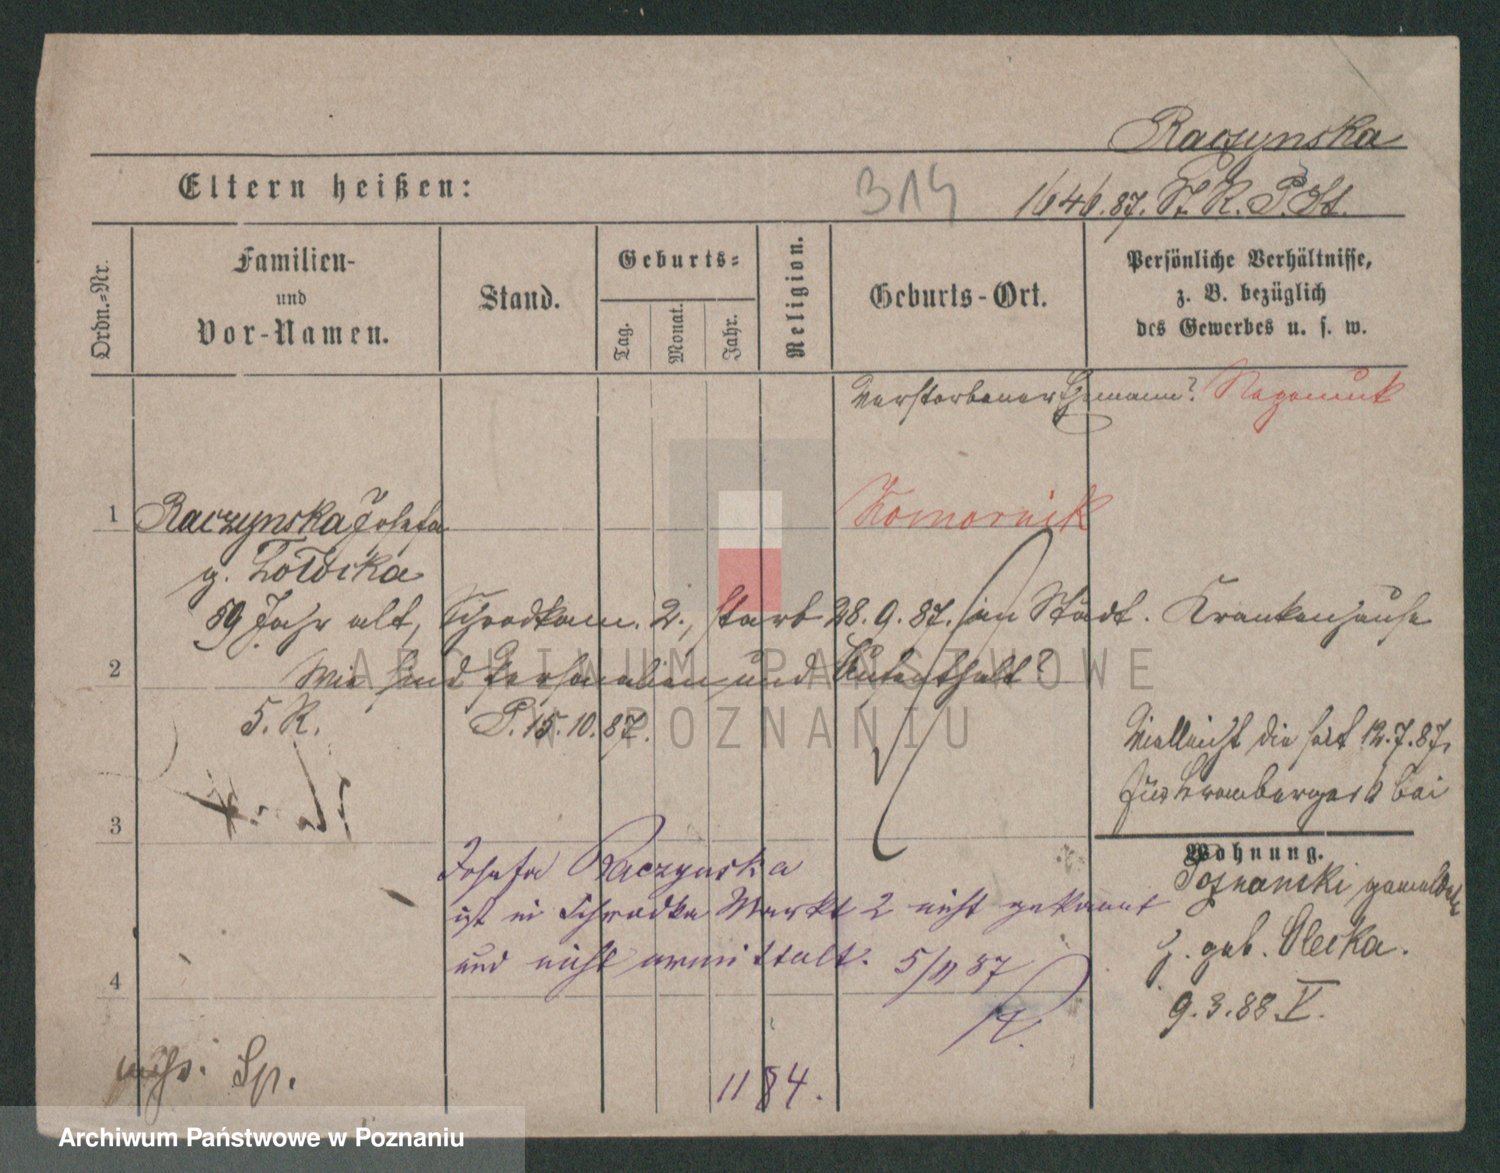 Raczynska
Eltern heißen:
314
1646.87. St. K. P. St.
Ordn.-Nr.
Familien-
und
Vor-Namen.
Stand.
Geburts-
Tag.
Monat.
Jahr.
Religion.
Geburts-Ort.
Persönliche Verhältnisse,
z. B. bezüglich
des Gewerbes u. s. w.
Verstorbener Ehemann?
Komornik
1
Raczynska Josefa
g.
59 Jahr alt, Schrodkam. 2., starb 28.9.87. im Städt. Krankenhause
2
Wie sind Personalien und Aufenthalt?
S. R.
P. 15.10.87.
Vielleicht die seit 12.7.87.
bei
3
Wohnung.
Josefa Raczynska
Posnanski gemeldete
ist in Schrodka Markt 2 nicht gekannt
und nicht ermittelt. 5/11 87
g. geb. Olecka.
4
9.3.88 V.
Sp.
1184.
ARCHIWUM PAŃSTWOWE
W POZNANIU
Archiwum Państwowe w Poznaniu